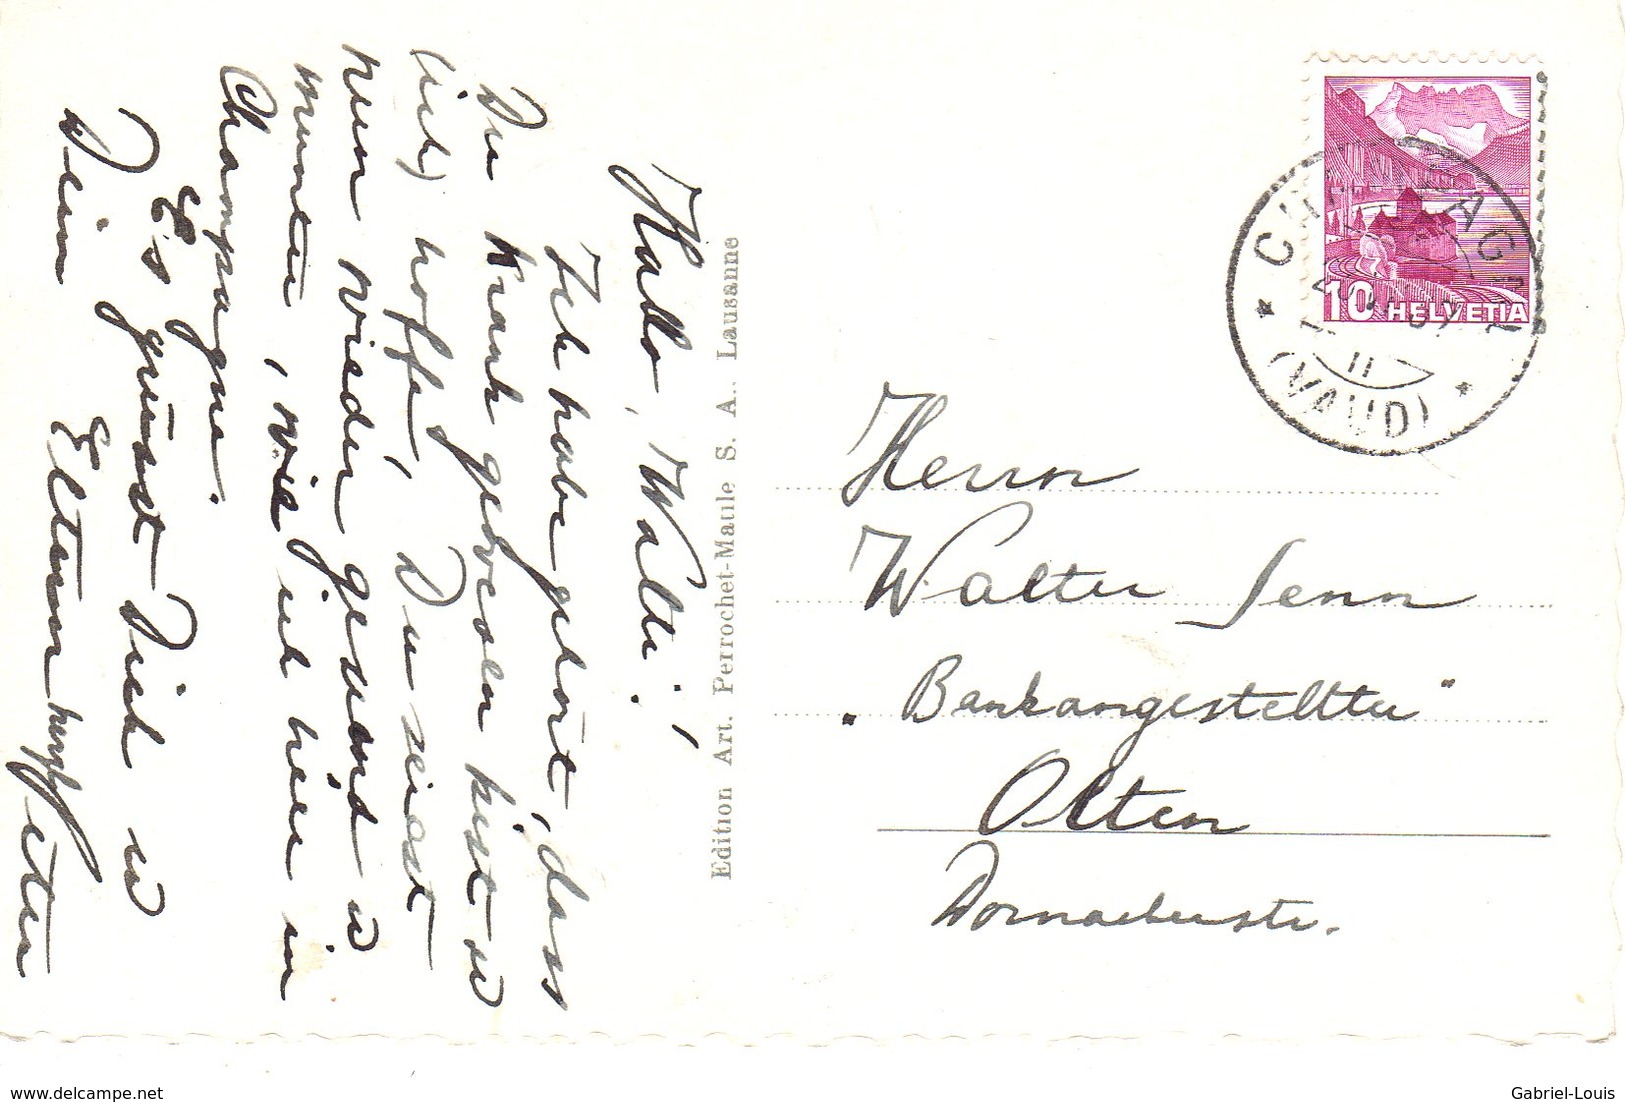 Hallo, Walti!
Ich habe gehört, dass
Du krank gewesen bist u
(ich) hoffe, Du seiest
nun wieder gesund u
munter, wie ich hier in
Champagne.
Es grüsst Dich u
Deine Eltern herzl
Dein
Edition Art. Perrochet-Matile S. A. Lausanne
CHAMPAGNE
(VAUD)
II
10 HELVETIA
Herrn
Walter Jenn
„Bankangestellter"
Olten
Dornacherstr.
delcampe.net
Gabriel-Louis